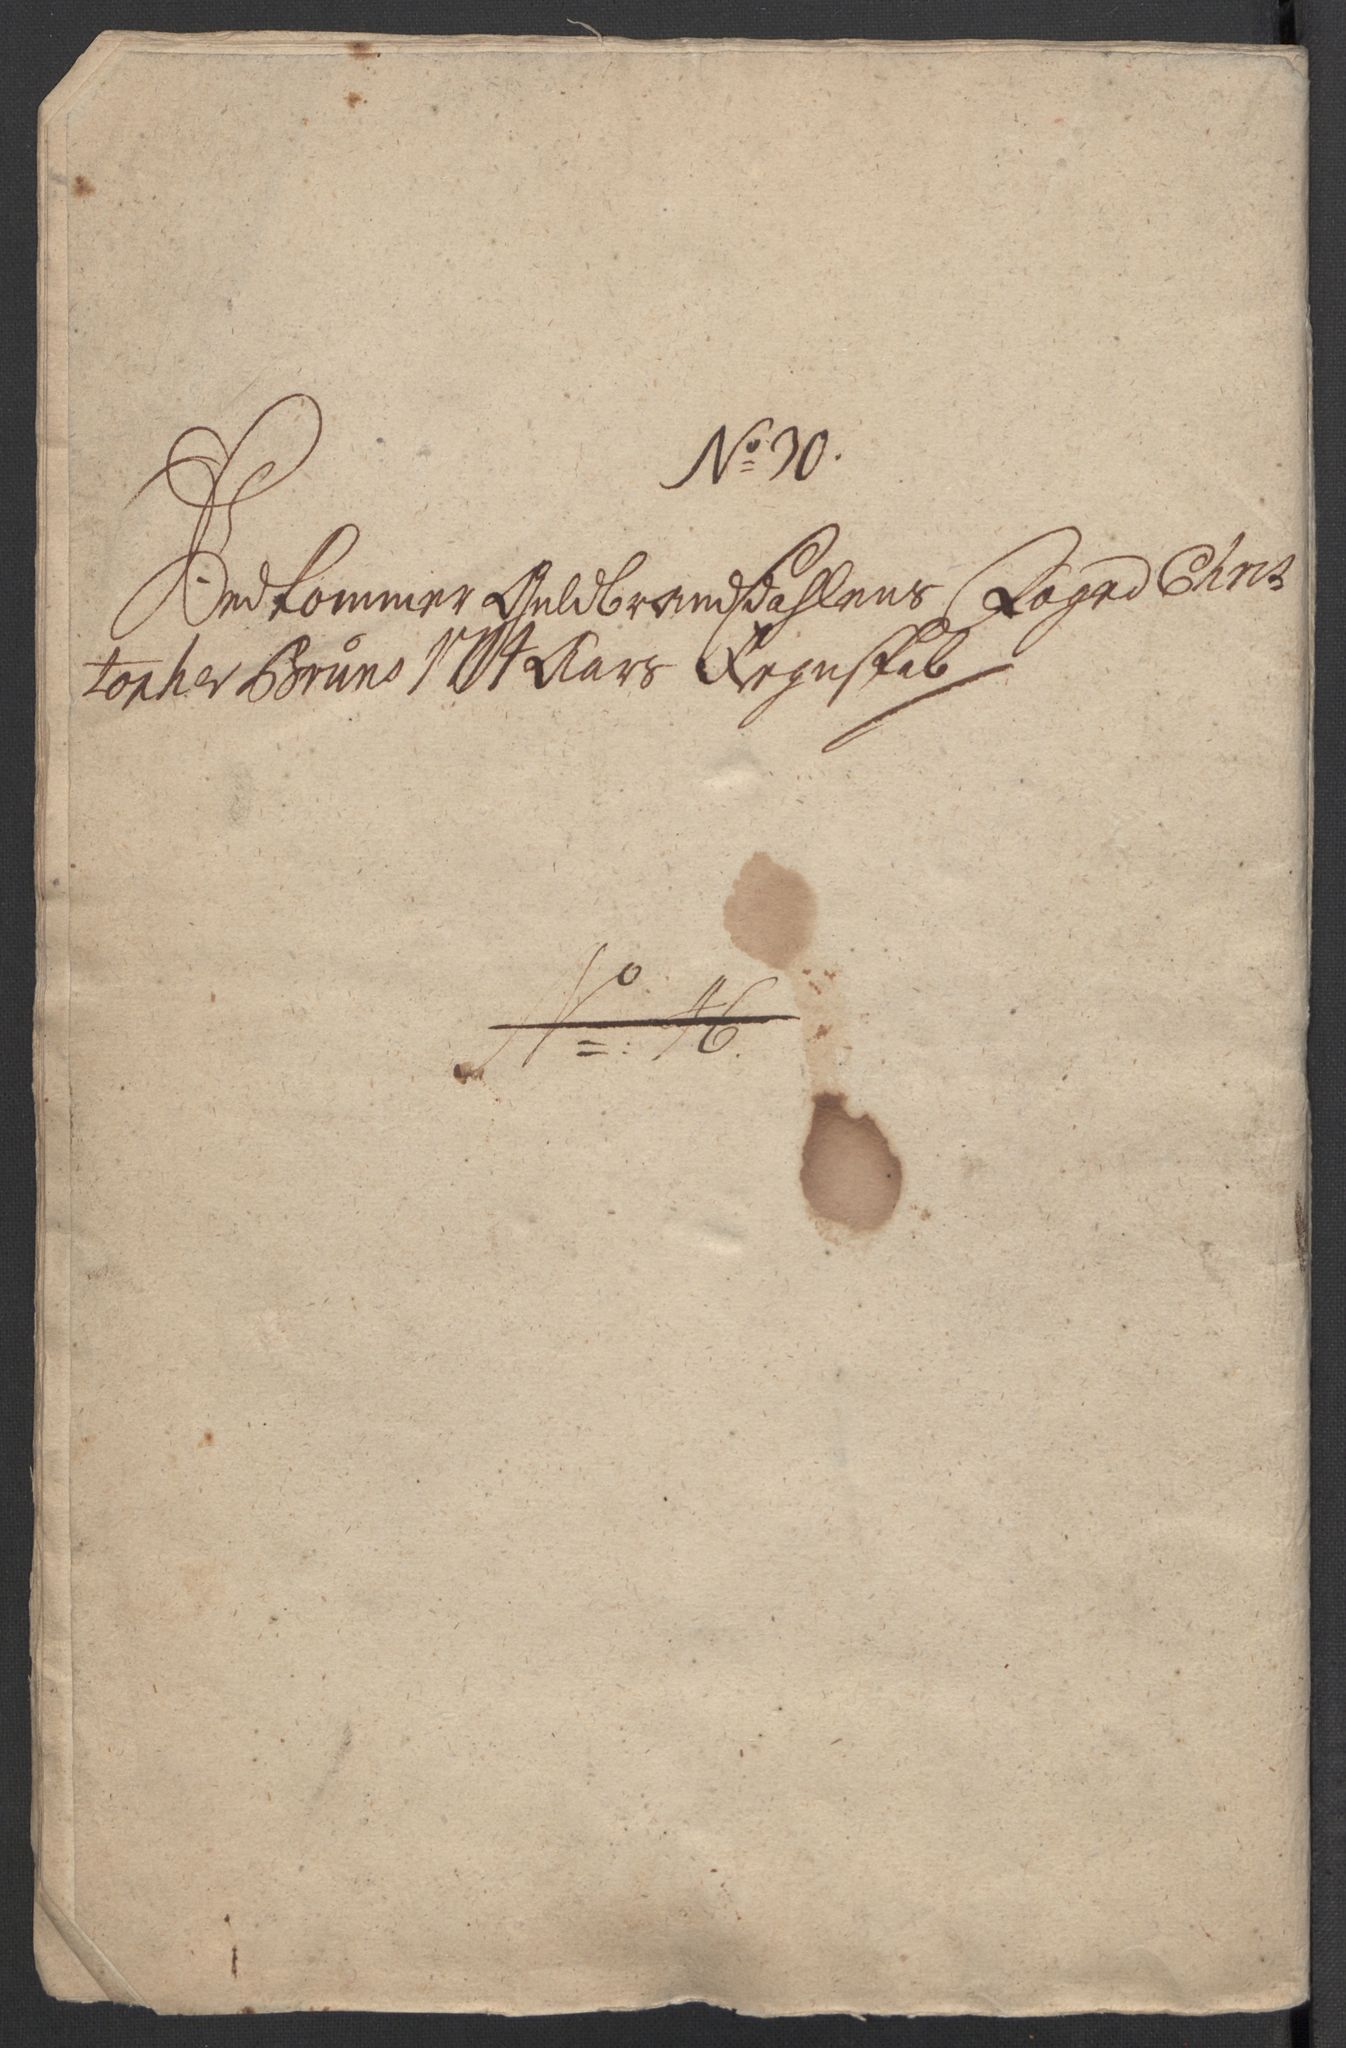 No 30.
Vedkommer Guldbrandsdahlens Foged Chris
topher Bruun 1714 Aars Regnskab
No: 46.